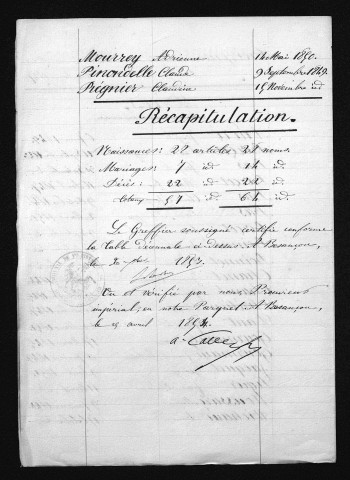 Mourrey Adrienne 14 Mai 1850.
Pinaudolle Claude 9 Septembre 1849.
Prégnier Claudine 15 Novembre id
Récapitulation.
Naissances: 22 articles 22 noms.
Mariages: 7 id 14 id
Décès: 22 id 22 id
Totaux 51 64 id
Le Greffier soussigné certifie conforme
la table décennale ci dessus. A Besançon,
le 30 1853.
Vu et vérifié par nous Procureur
impérial, en notre Parquet, A Besançon,
le avril 1854.